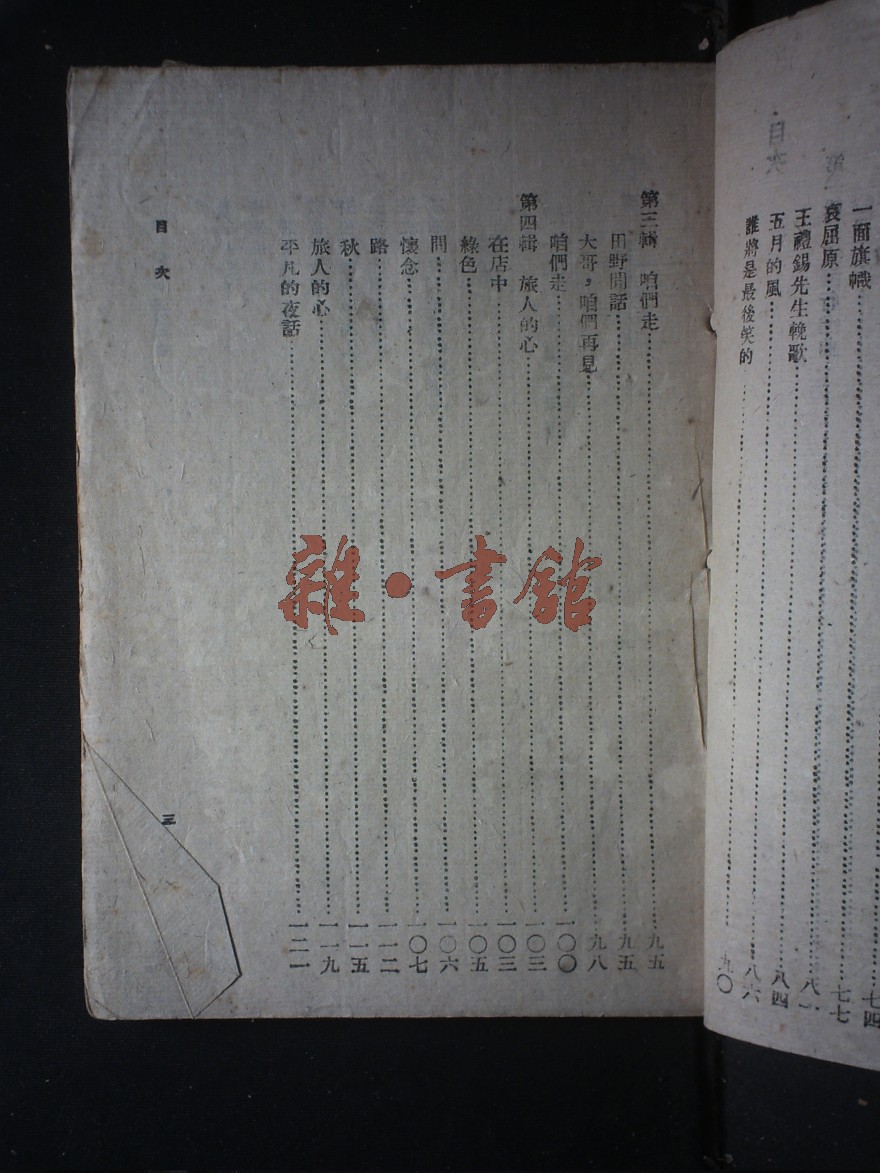 一面旗幟……七四
哀屈原……七七
王禮錫先生輓歌……八一
五月的風……八四
誰將是最後笑的……八六
九〇
第三輯　咱們走……九五
田野閒話……九五
大哥，咱們再見……九八
咱們走……一〇〇
第四輯　旅人的心……一〇三
在店中……一〇三
綠色……一〇五
問……一〇六
懷念……一〇七
路……一一二
秋……一一五
旅人的心……一一九
平凡的夜話……一二一
目次
三
雜·書館